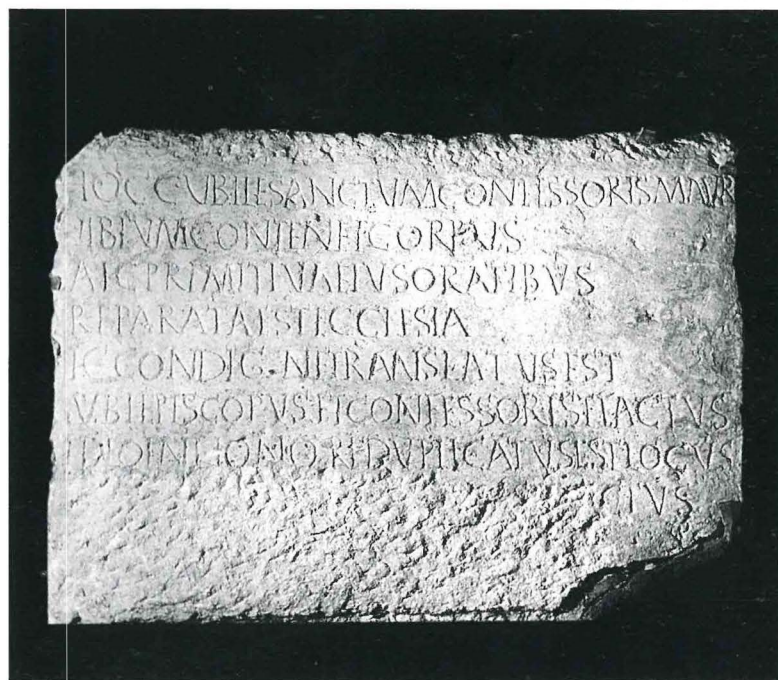 HOCCVBILESANCTVMCONFESSORISMAVR
NIBEVMCONTENETCORPVS
AECPRIMITIVAEIVSORATIBVS
REPARATAESTECCLESIA
ICCONDIGNETRANSLATVSEST
VBIEPISCOPVSETCONFESSORESTFACTVS
IDEOINHONOREDVPLICATVSESTLOCVS